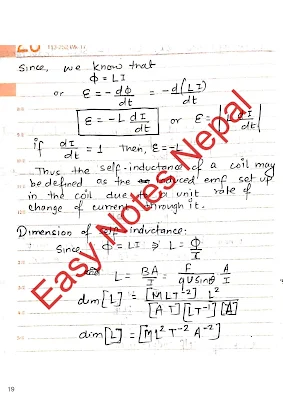 Since, we know that
ϕ = LI
or ε = -dϕ/dt = -d(LI)/dt
ε = -L dI/dt or ε = |L dI/dt|
if dI/dt = 1 Then, ε = -L
Thus the self-inductance of a coil may
be defined as the induced emf set up
in the coil due to a unit rate of
change of current through it.
Dimension of self-inductance:
Since ϕ = LI ⇒ L = ϕ/I
L = BA/I = F/qvsinθ A/I
dim[L] = [MLT⁻²] L² / [AT][LT⁻¹][A]
dim[L] = [ML²T⁻²A⁻²]
Easy Notes Nepal
19